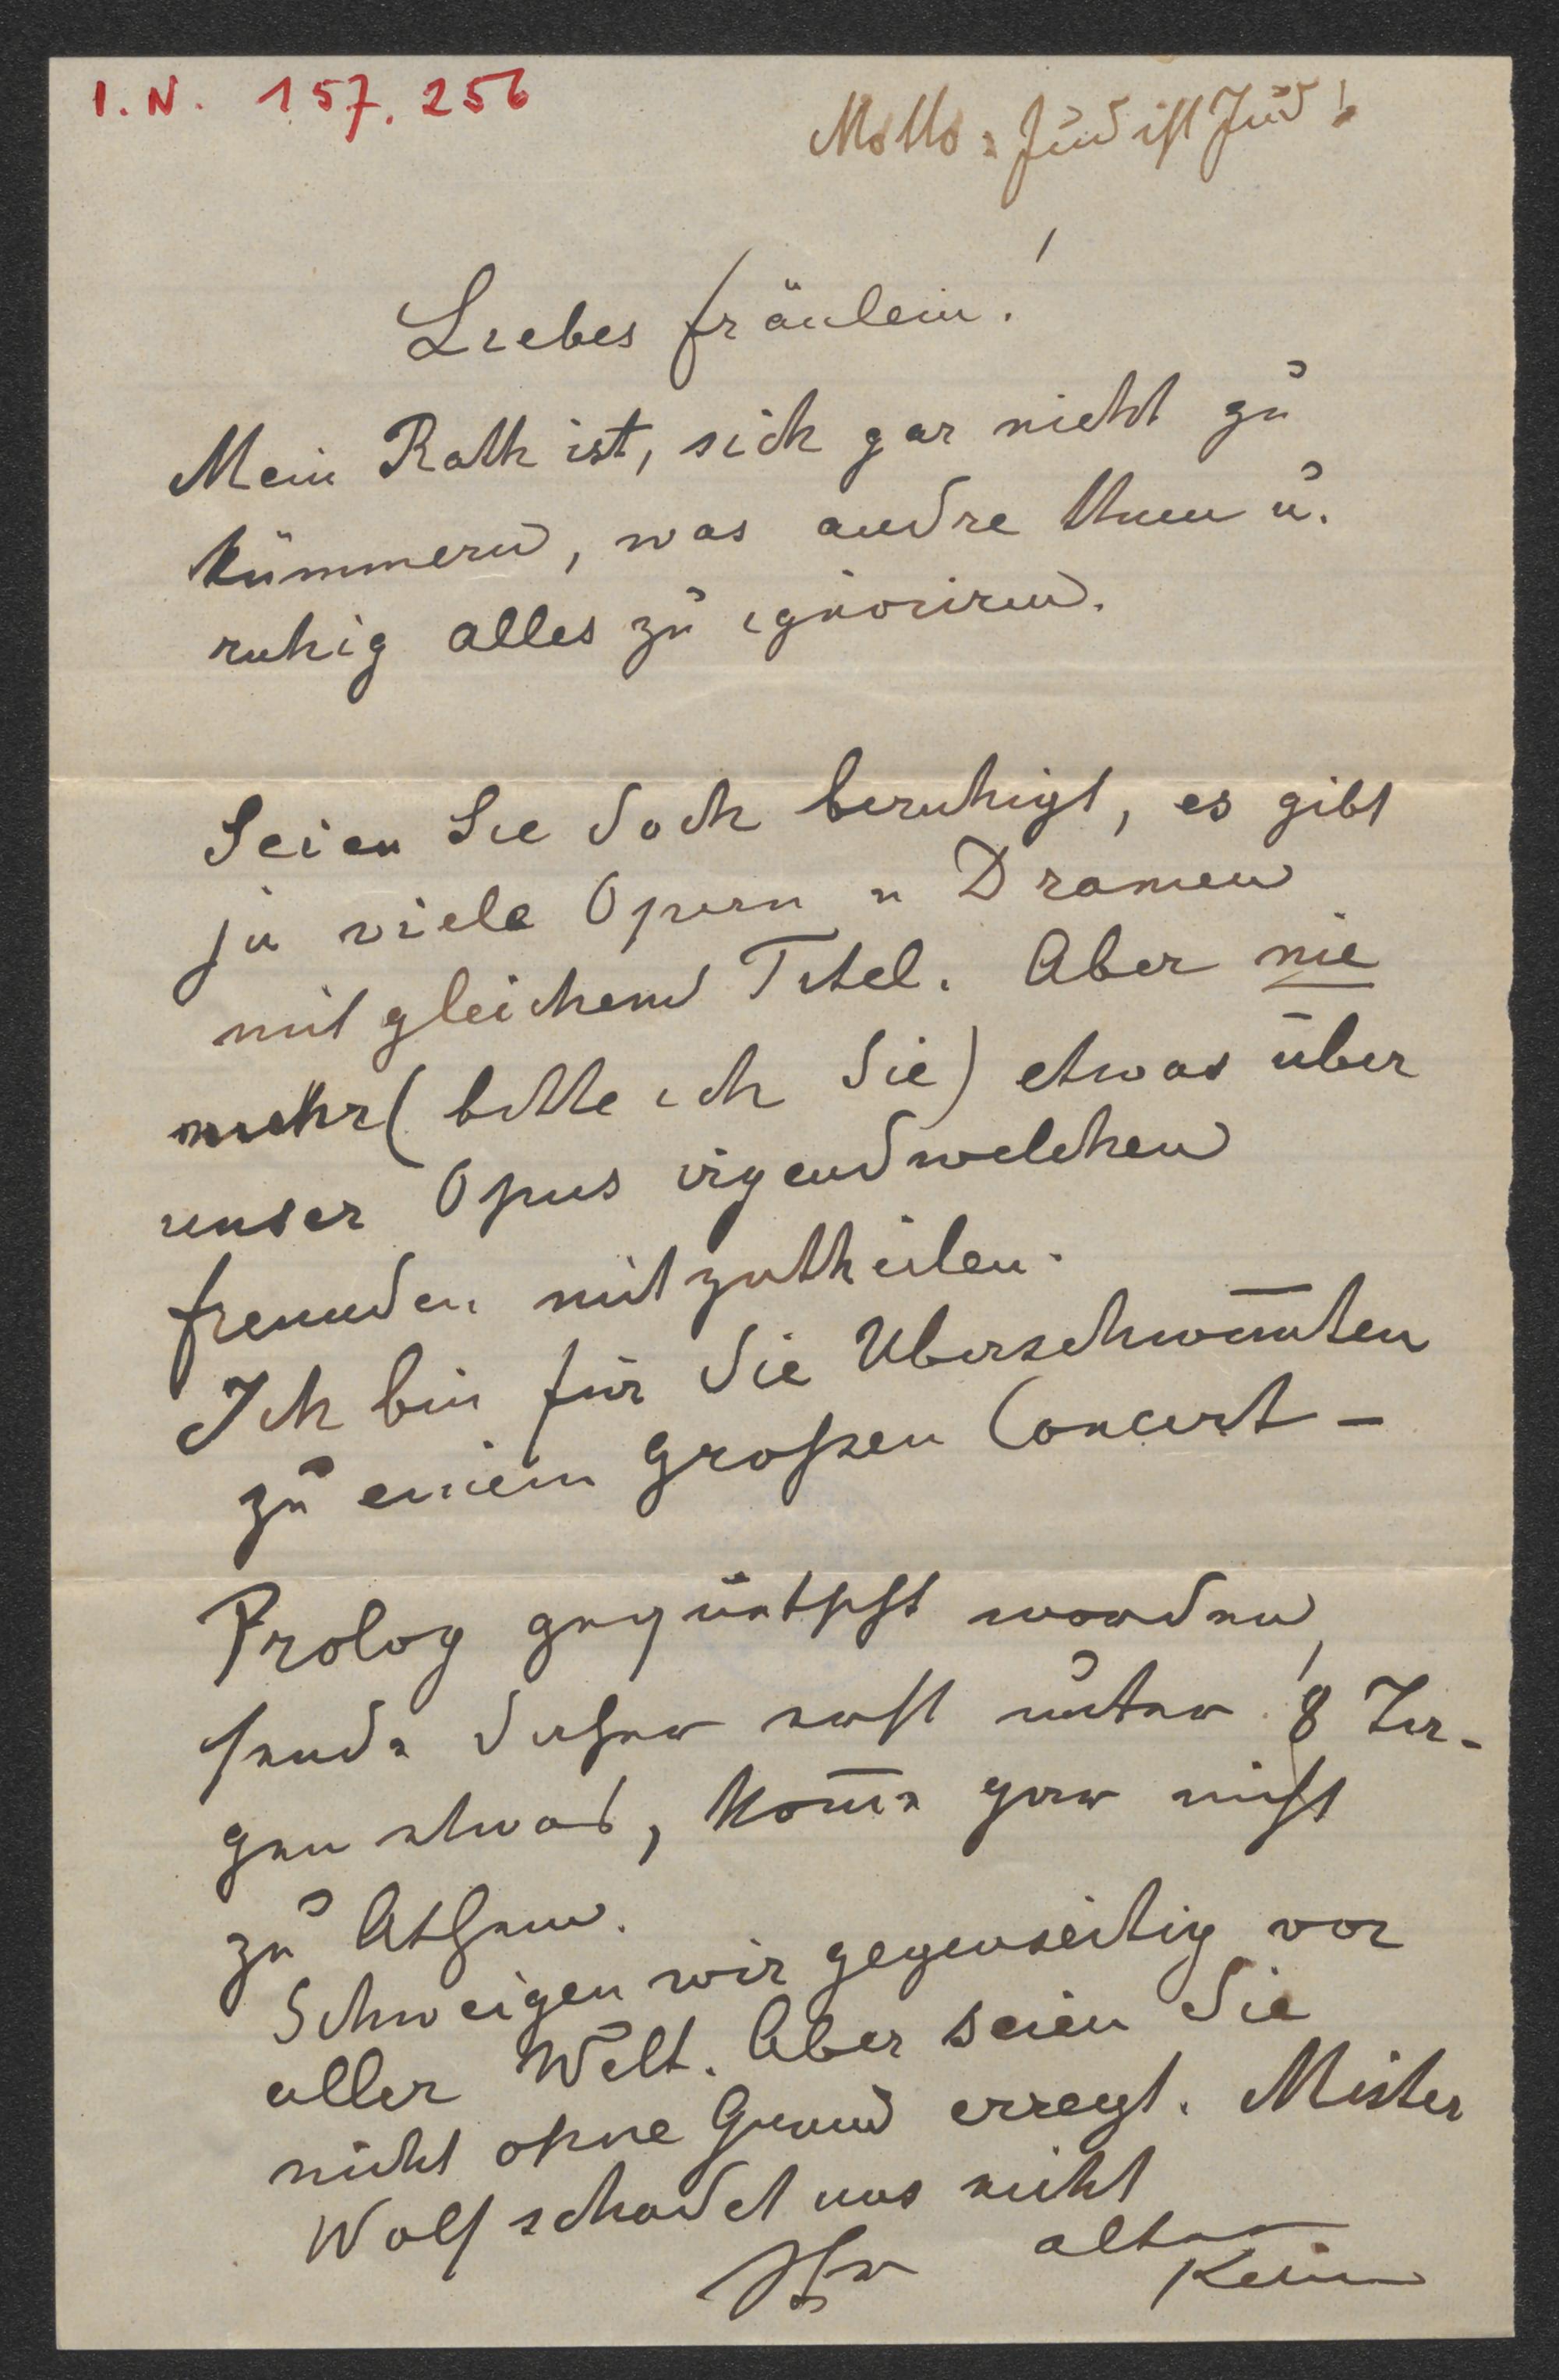 I. N. 157.256
Motto: Jud ist Jud!
Liebes Fräulein!
Mein Rath ist, sich gar nicht zu
kümmern, was andre thuen u.
ruhig alles zu ignoriren.
Seien Sie doch beruhigt, es gibt
ja viele Opern u Dramen
mit gleichem Titel. Aber nie
mehr (bitte ich Sie) etwas über
unser Opus irgendwelchen
Freunden mitzutheilen.
Ich bin für die Überschwem̄ten
zu einem großen Concert-
Prolog gequetscht worden,
sende daher erst unter 8 Ta-
gen etwas, kom̄e gar nicht
zu Athem.
Schweigen wir gegenseitig vor
aller Welt. Aber seien Sie
nicht ohne Grund erregt. Mister
Wolf schadet uns nicht
Ihr alter
Keim